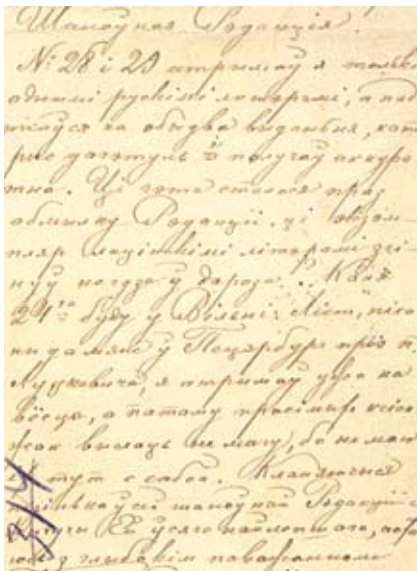 Шаноўная Рэдакція.
№ 28 і 29 атрымаў я толькі
аднымі рускімі літэрамі, а пад
пісаўся на обыдва выданьня, кат
рые дагэтуль і получаў аккура
тна. Ці гэта сталося праз
абмылку Рэдакціі, ці экзэм
пляр лацінскімі літэрамі згі
нуў нагдзе ў дарозе. Калі
24го буду ў Вільні. Ліст, піса
ны да мяне ў Пецярбург праз п.
Луцкевича, я атрымаў ужо на
вёсцы, а патаму
жак выслаць не магу, бо не маю
тут с сабой. Кланяючыся
ўсей шаноўнай Рэдакціі і
Ей ўсяго найлепшаго,
з глыбокім паважаннем
3/4